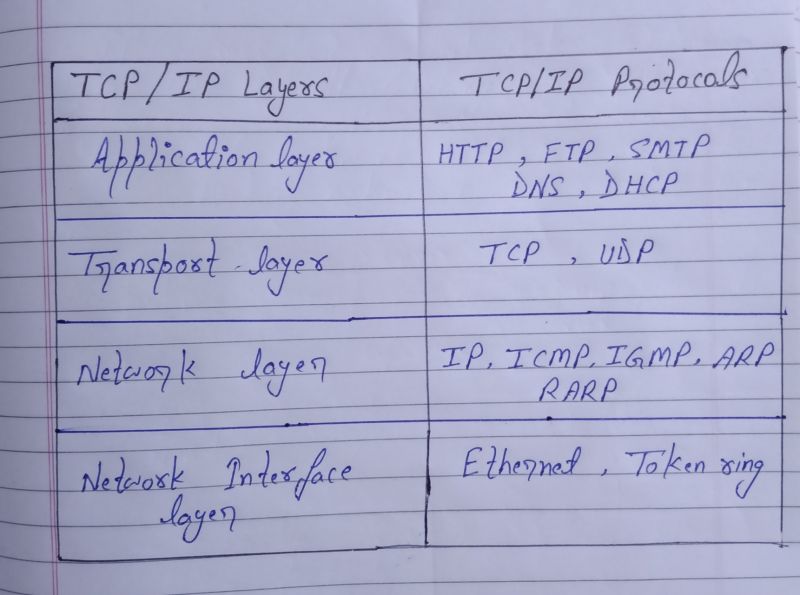 TCP/IP Layers
TCP/IP Protocals
Application layer
HTTP, FTP, SMTP
DNS, DHCP
Transport layer
TCP, UDP
Network layer
IP, ICMP, IGMP, ARP
RARP
Network Interface
layer
Ethernet, Token ring